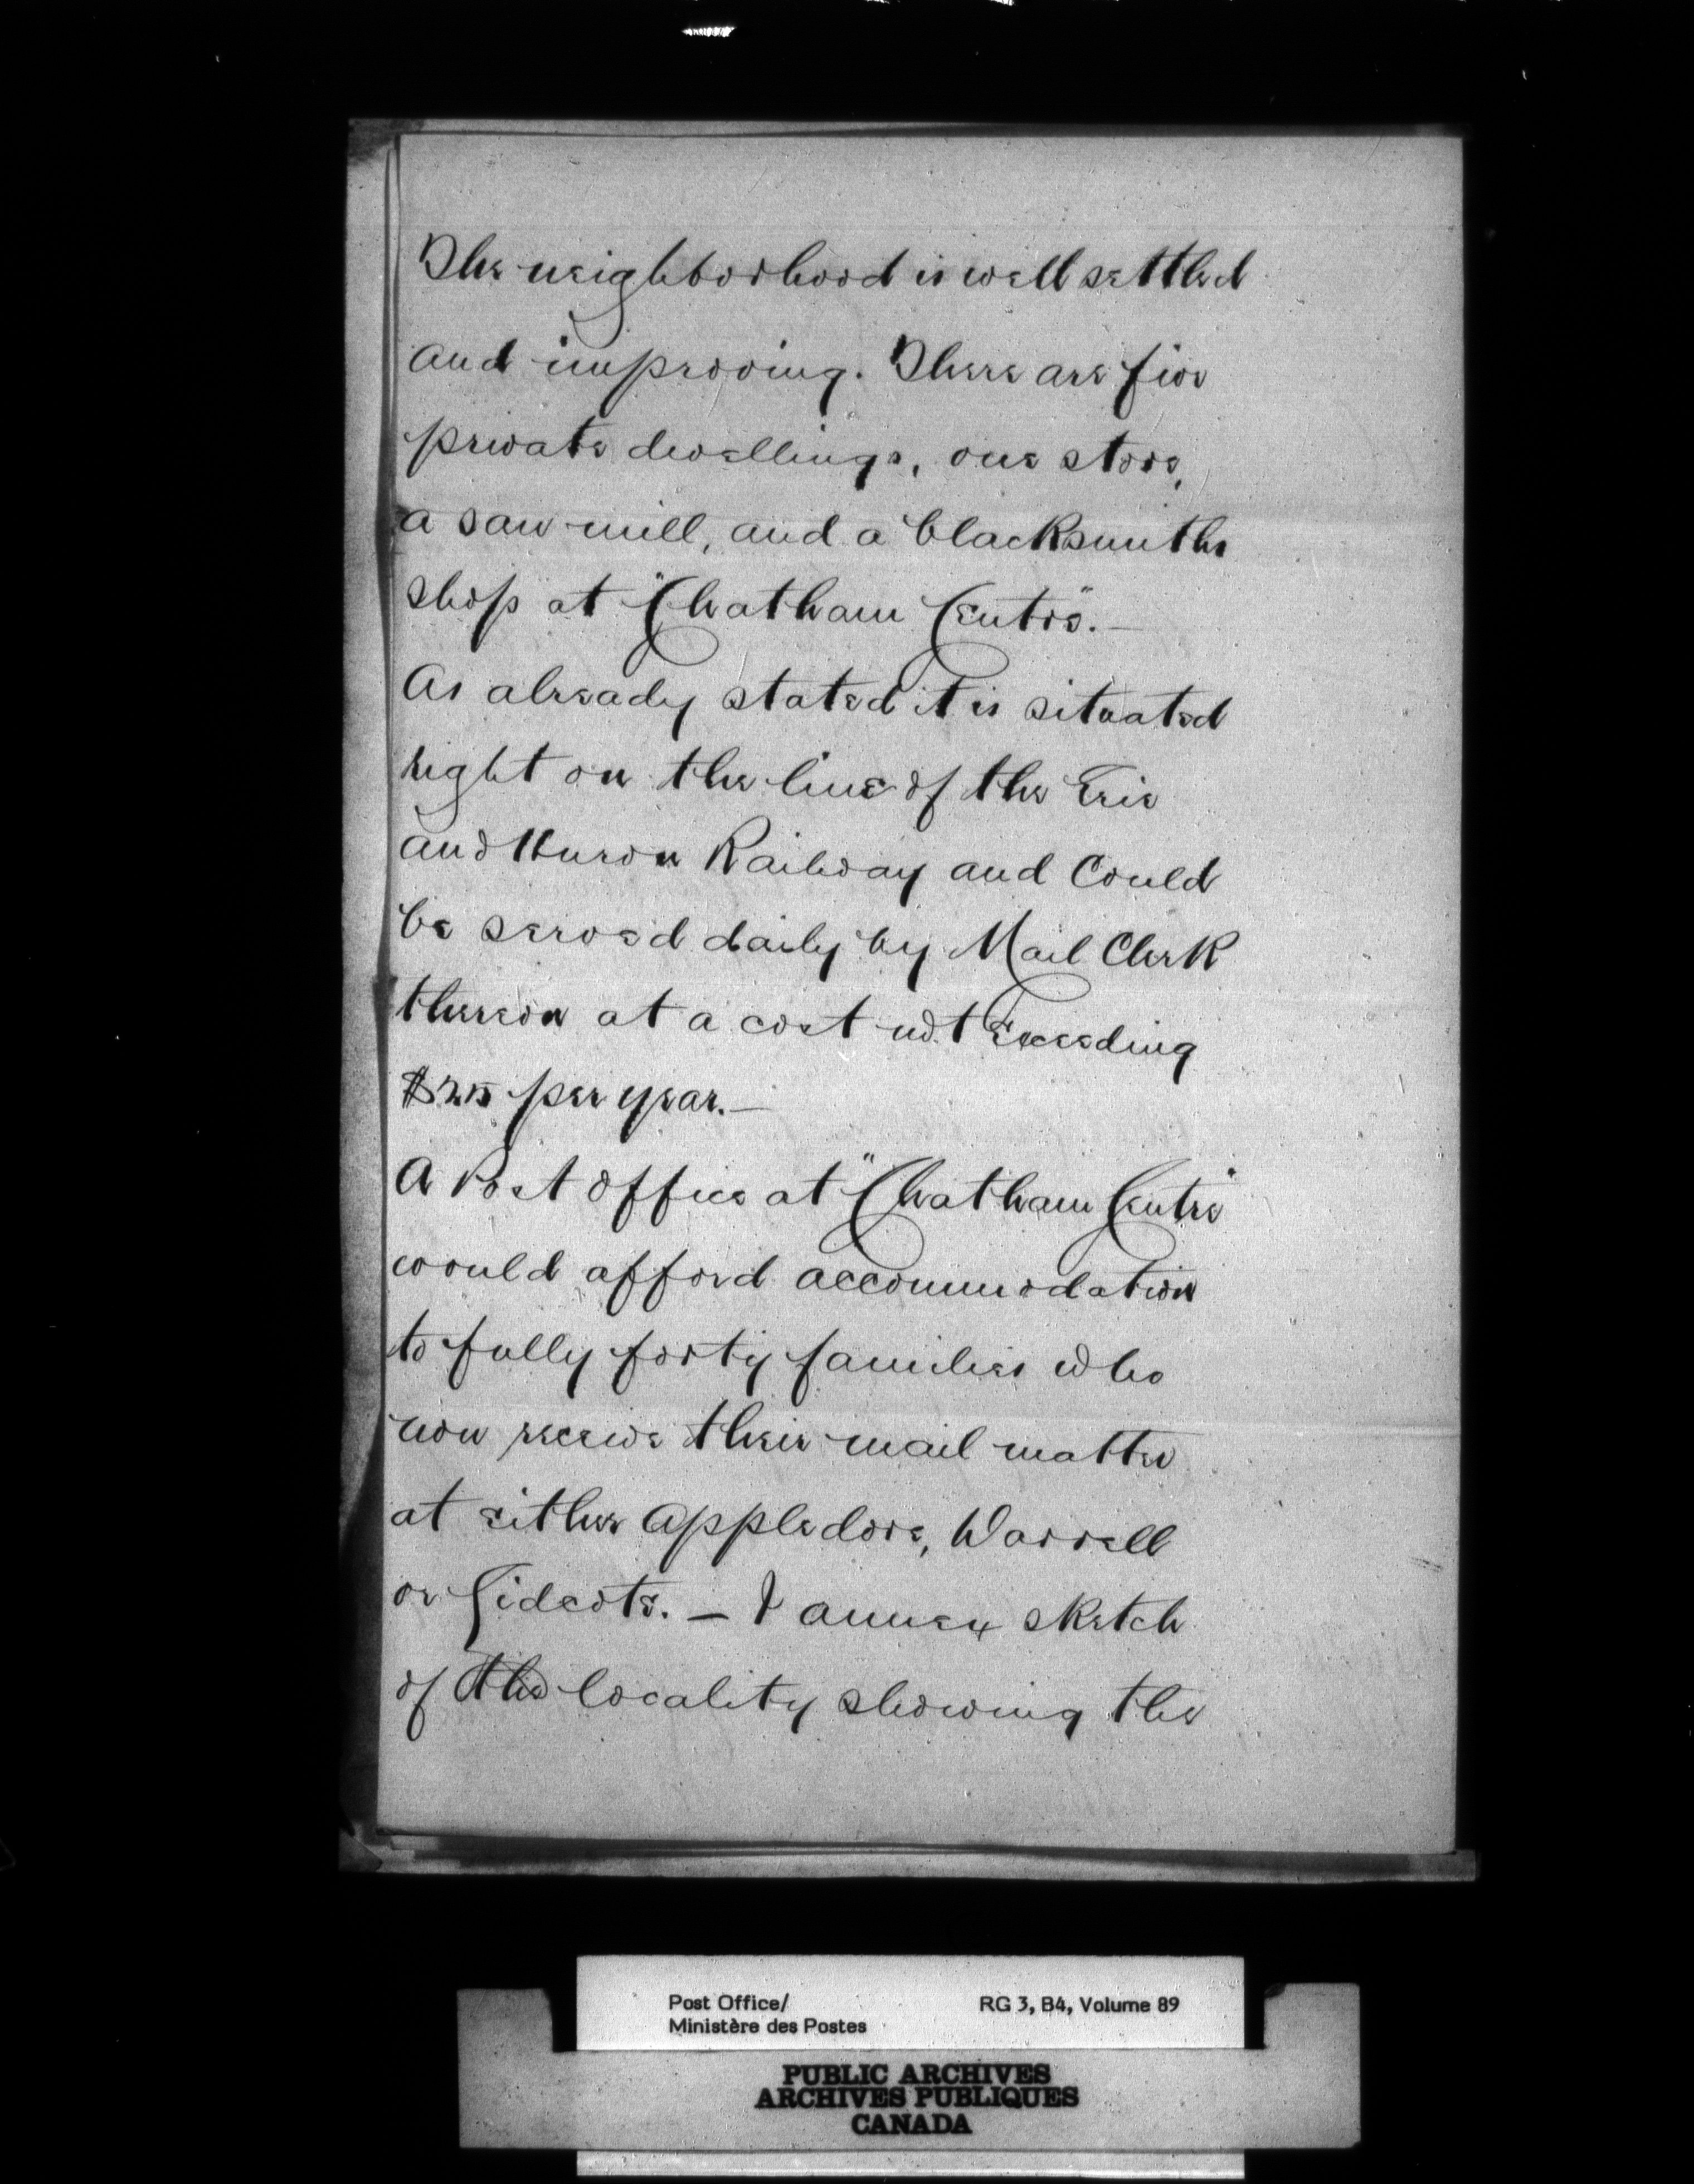 The neighborhood is well settled
and improving. There are five
private dwellings, one store,
a saw mill, and a blacksmiths
shop at "Chatham Centre". —
As already stated it is situated
right on the line of the Erie
and Huron Railway and Could
be served daily by Mail Clerk
thereon at a cost not Exceeding
$25 per year. —
A Post Office at "Chatham Centre"
would afford accommodation
to fully forty families who
now receive their mail matter
at either Appledore, Warrell
or Eidcote. — I annex sketch
of the locality showing the
Post Office/
Ministère des Postes
RG 3, B4, Volume 89
PUBLIC ARCHIVES
ARCHIVES PUBLIQUES
CANADA